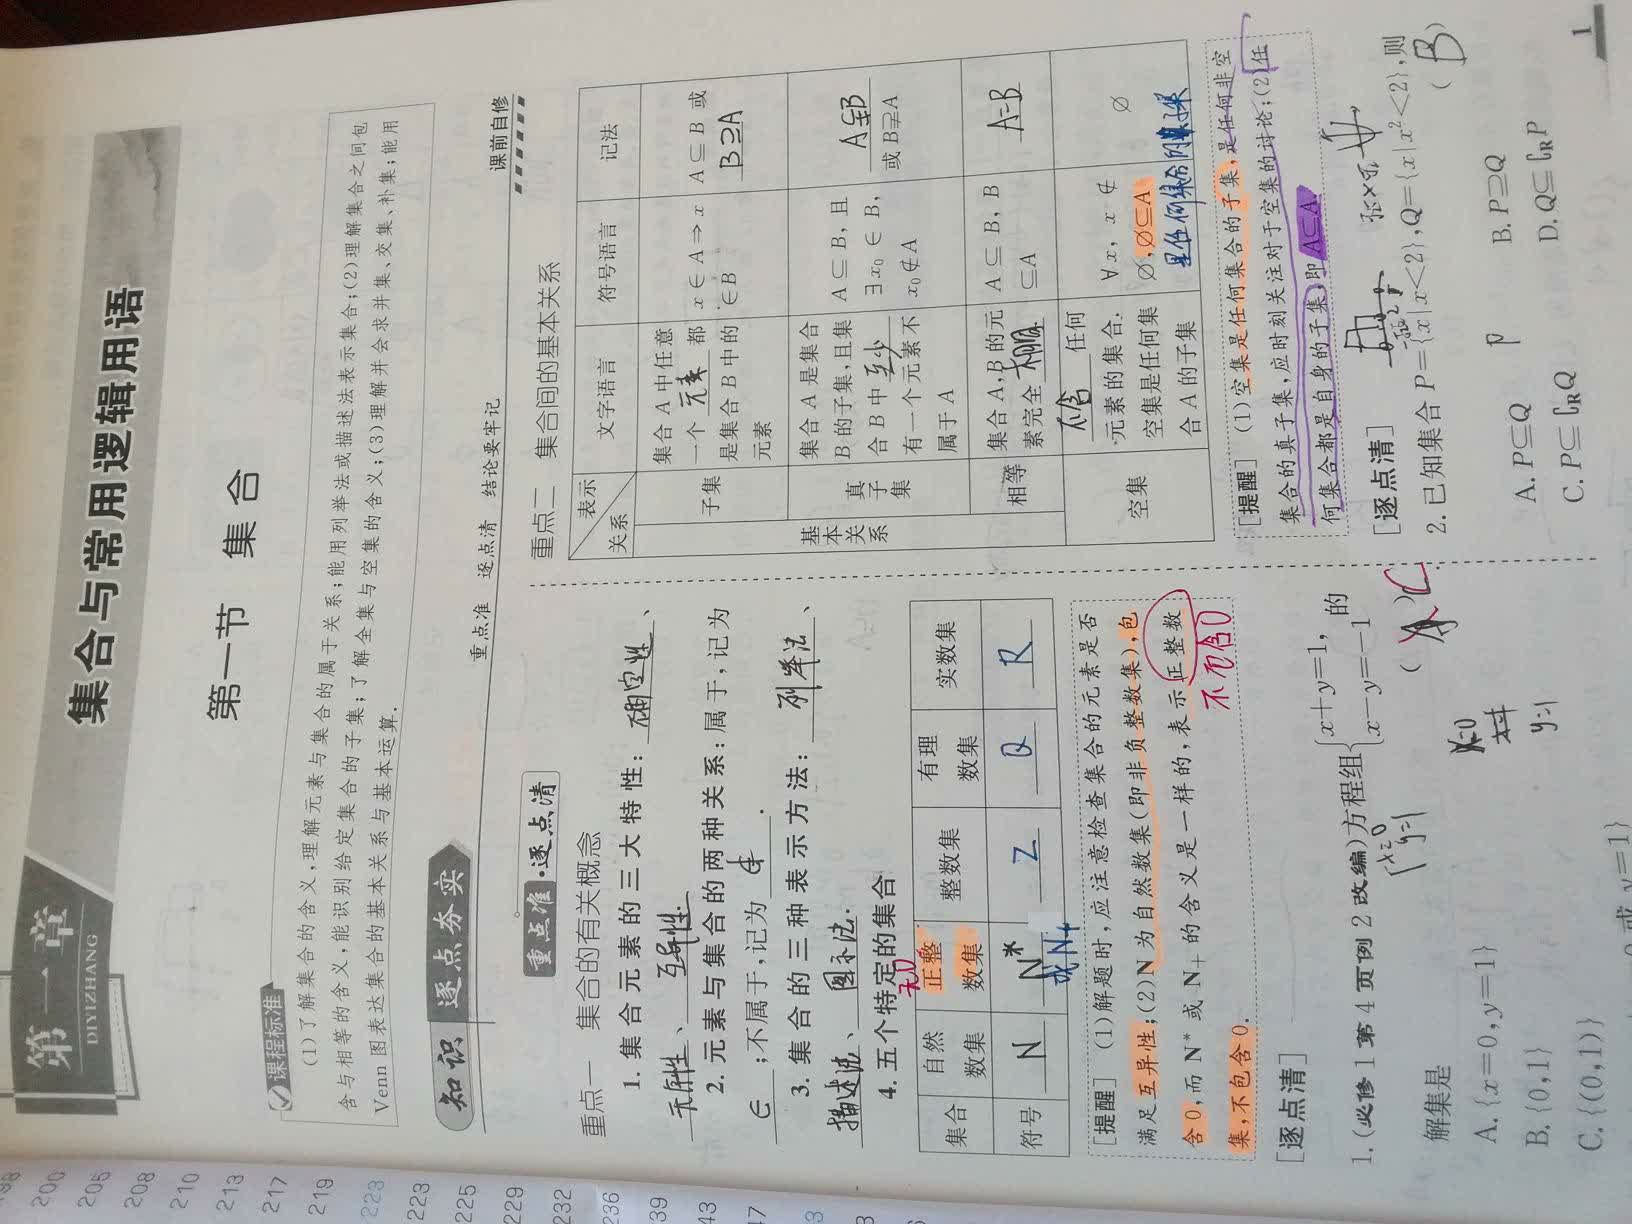 第一章
DIYIZHANG
集合与常用逻辑用语
第一节 集合
课程标准
(1)了解集合的含义,理解元素与集合的属于关系;能用列举法或描述法表示集合;(2)理解集合之间包
含与相等的含义,能识别给定集合的子集;了解全集与空集的含义;(3)理解并会求并集、交集、补集;能用
Venn 图表达集合的基本关系与基本运算.
知识 逐点夯实
重点准 逐点清 结论要牢记
课前自修
重点准·逐点清
重点一 集合的有关概念
1. 集合元素的三大特性: 确定性、
无序性、互异性.
2. 元素与集合的两种关系:属于,记为
∈;不属于,记为∉.
3. 集合的三种表示方法: 列举法、
描述法、图示法.
4. 五个特定的集合
无0
集合 自然数集 正整数集 整数集 有理数集 实数集
符号 N N* 或N₊ Z Q R
[提醒] (1)解题时,应注意检查集合的元素是否
满足互异性;(2)N为自然数集(即非负整数集),包
含0,而N*或N₊的含义是一样的,表示正整数
集,不包含0.
不包含0
[逐点清]
1. (必修1第4页例2改编)方程组{x+y=1, x-y=-1 的
解集是 ( A )C
{x=0 y=1
x=0
y=1
A. {x=0,y=1}
B. {0,1}
C. {(0,1)}
重点二 集合间的基本关系
表示 关系 文字语言 符号语言 记法
基本关系
子集 集合A中任意
一个元素都
是集合B中的
元素
x∈A⇒x
∈B
A⊆B或
B⊇A
真子集 集合A是集合
B的子集,且集
合B中至少
有一个元素不
属于A
A⊆B,且
∃x₀∈B,
x₀∉A
A⫋B
或B⫌A
相等 集合A,B的元
素完全相同
A⊆B,B
⊆A
A=B
空集 不含任何
元素的集合.
空集是任何集
合A的子集
∀x,x∉
∅,∅⊆A
∅
是任何集合的子集
[提醒] (1)空集是任何集合的子集,是任何非空
集合的真子集,应时刻关注对于空集的讨论;(2)任
何集合都是自身的子集,即A⊆A.
[逐点清]
2. 已知集合P={x|x<2},Q={x|x²<2},则
( B )
A. P⊆Q
B. P⊇Q
C. P⊆∁RQ
D. Q⊆∁RP
P
1
200
205
208
210
213
217
219
223
223
225
229
232
236